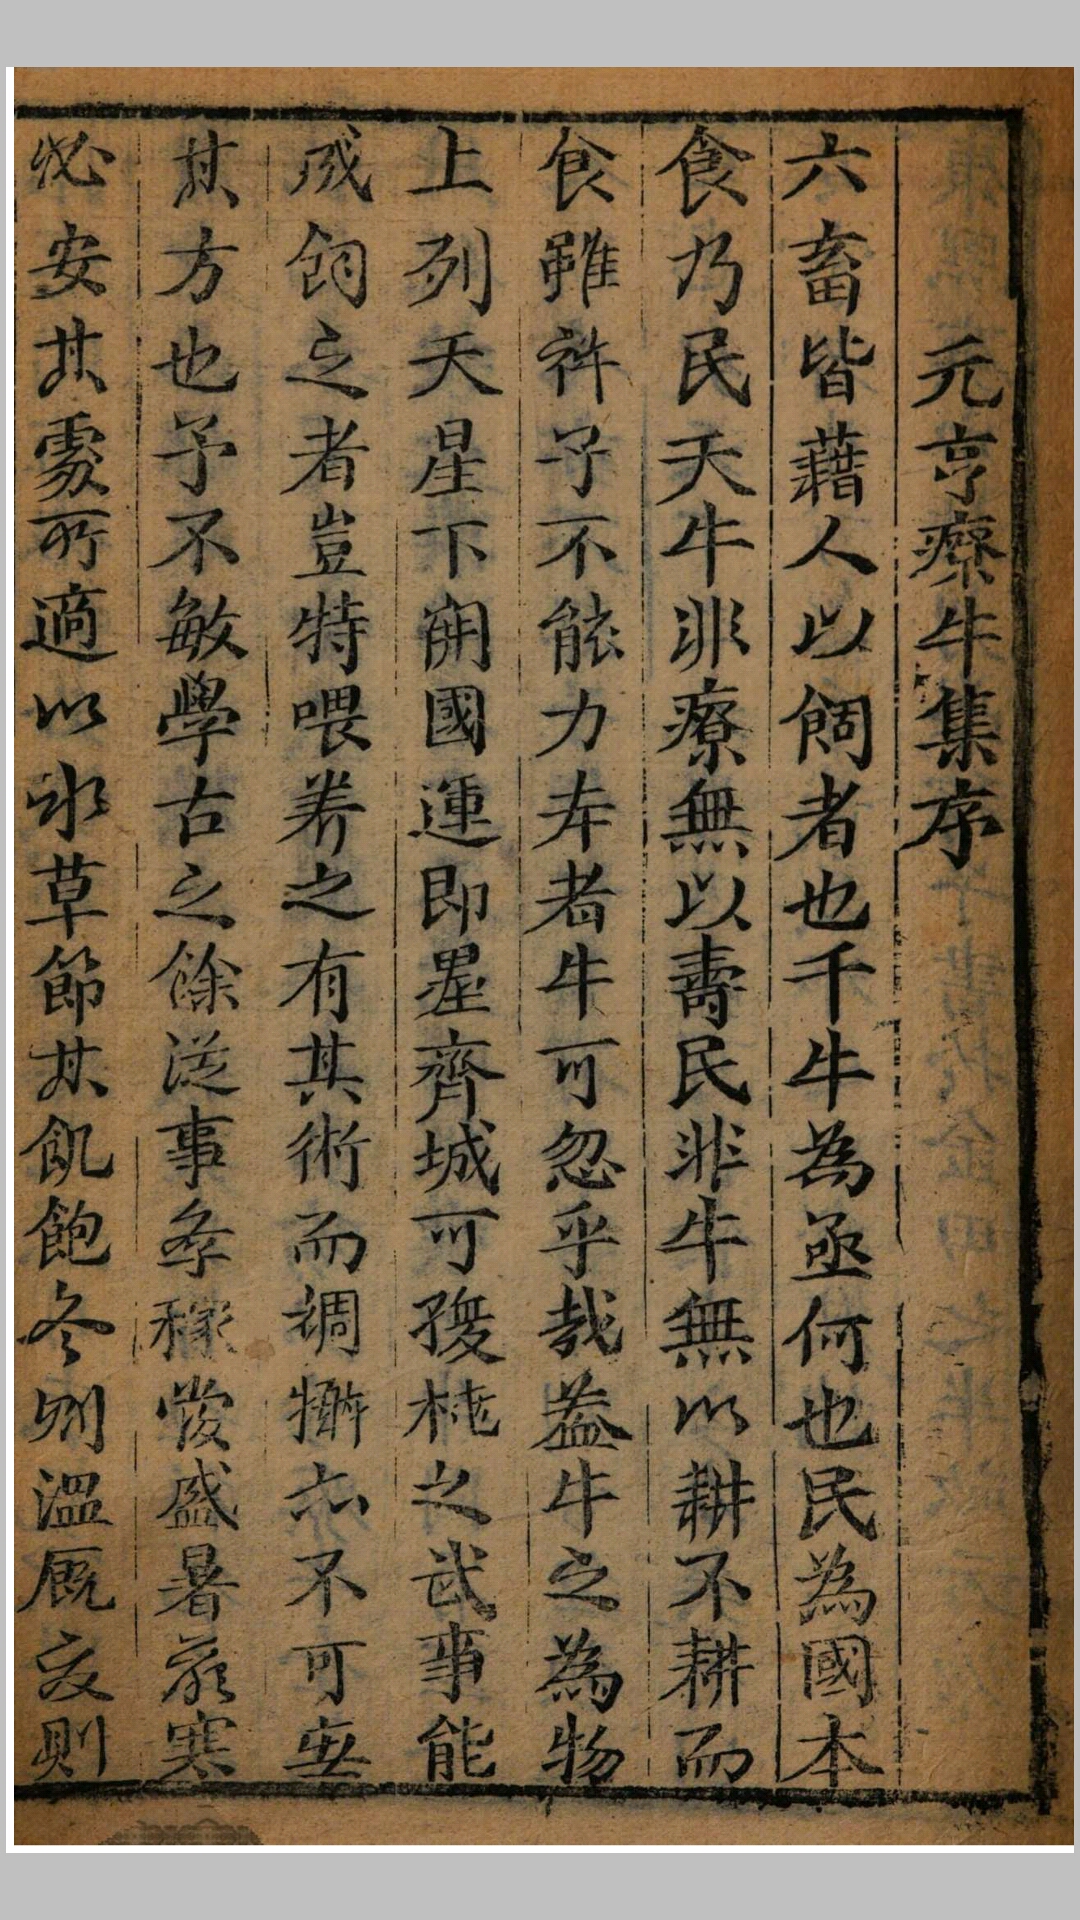 元亨療牛集序
六畜皆藉人以飼者也千牛為亟何也民為國本
食乃民天牛非療無以壽民非牛無以耕不耕而
食雖許子不能力夲者牛可忽乎㦲葢牛之為物
上列天星下開國運即墨齊城可復桃之武事能
成飼之者豈特喂养之有其術而調攡亦不可無
其方也予不敏學古之餘従事条稼當盛暑嚴寒
必安其處所適以水草節其飢飽冬則溫厩夏則